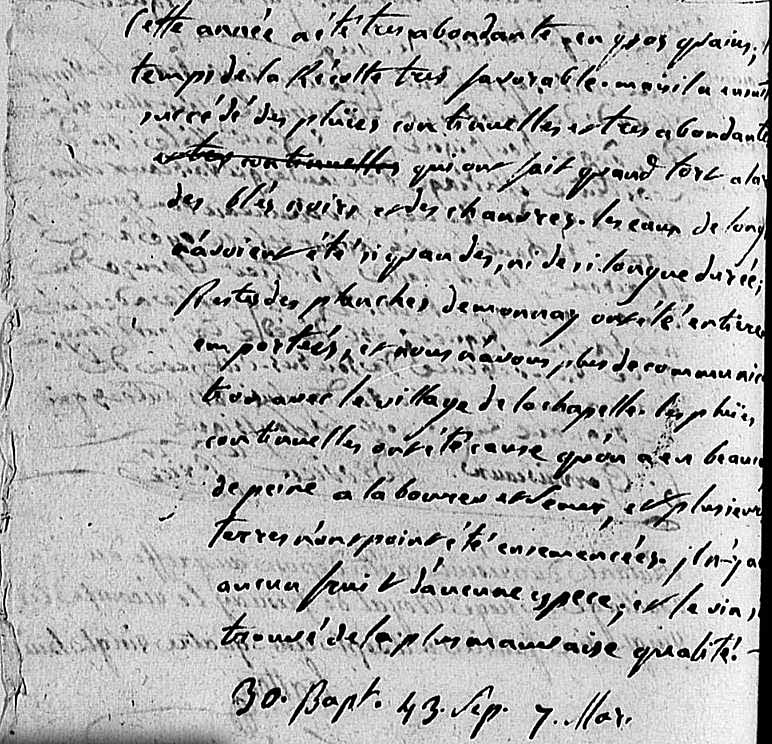 Cette année a été tres abondante en gros grains, l
temps de la Récolte tres favorable. mais il a ensuit
succédé des pluïes continuelles et tres abondante
et tres continuelles qui ont fait grand tort a la
des blés noirs et des chanvres. les eaux de long
n'avoient été si grandes, ni de si longue durée;
Restes des planches de monnay ont été entiere
emportées, et nous n'avons plus de communica
tion avec le village de la chapelle. les pluïes
continuelles ont été cause qu'on a eu beauc
de peine a labourer et semer, et plusieur
terres n'ont point été ensemencées. il n-y a
aucun fruit d'aucune espece, et le vin s
trouvé de la plus mauvaise qualité. -
30. Bapt. 43. Sep. 7. Mar.